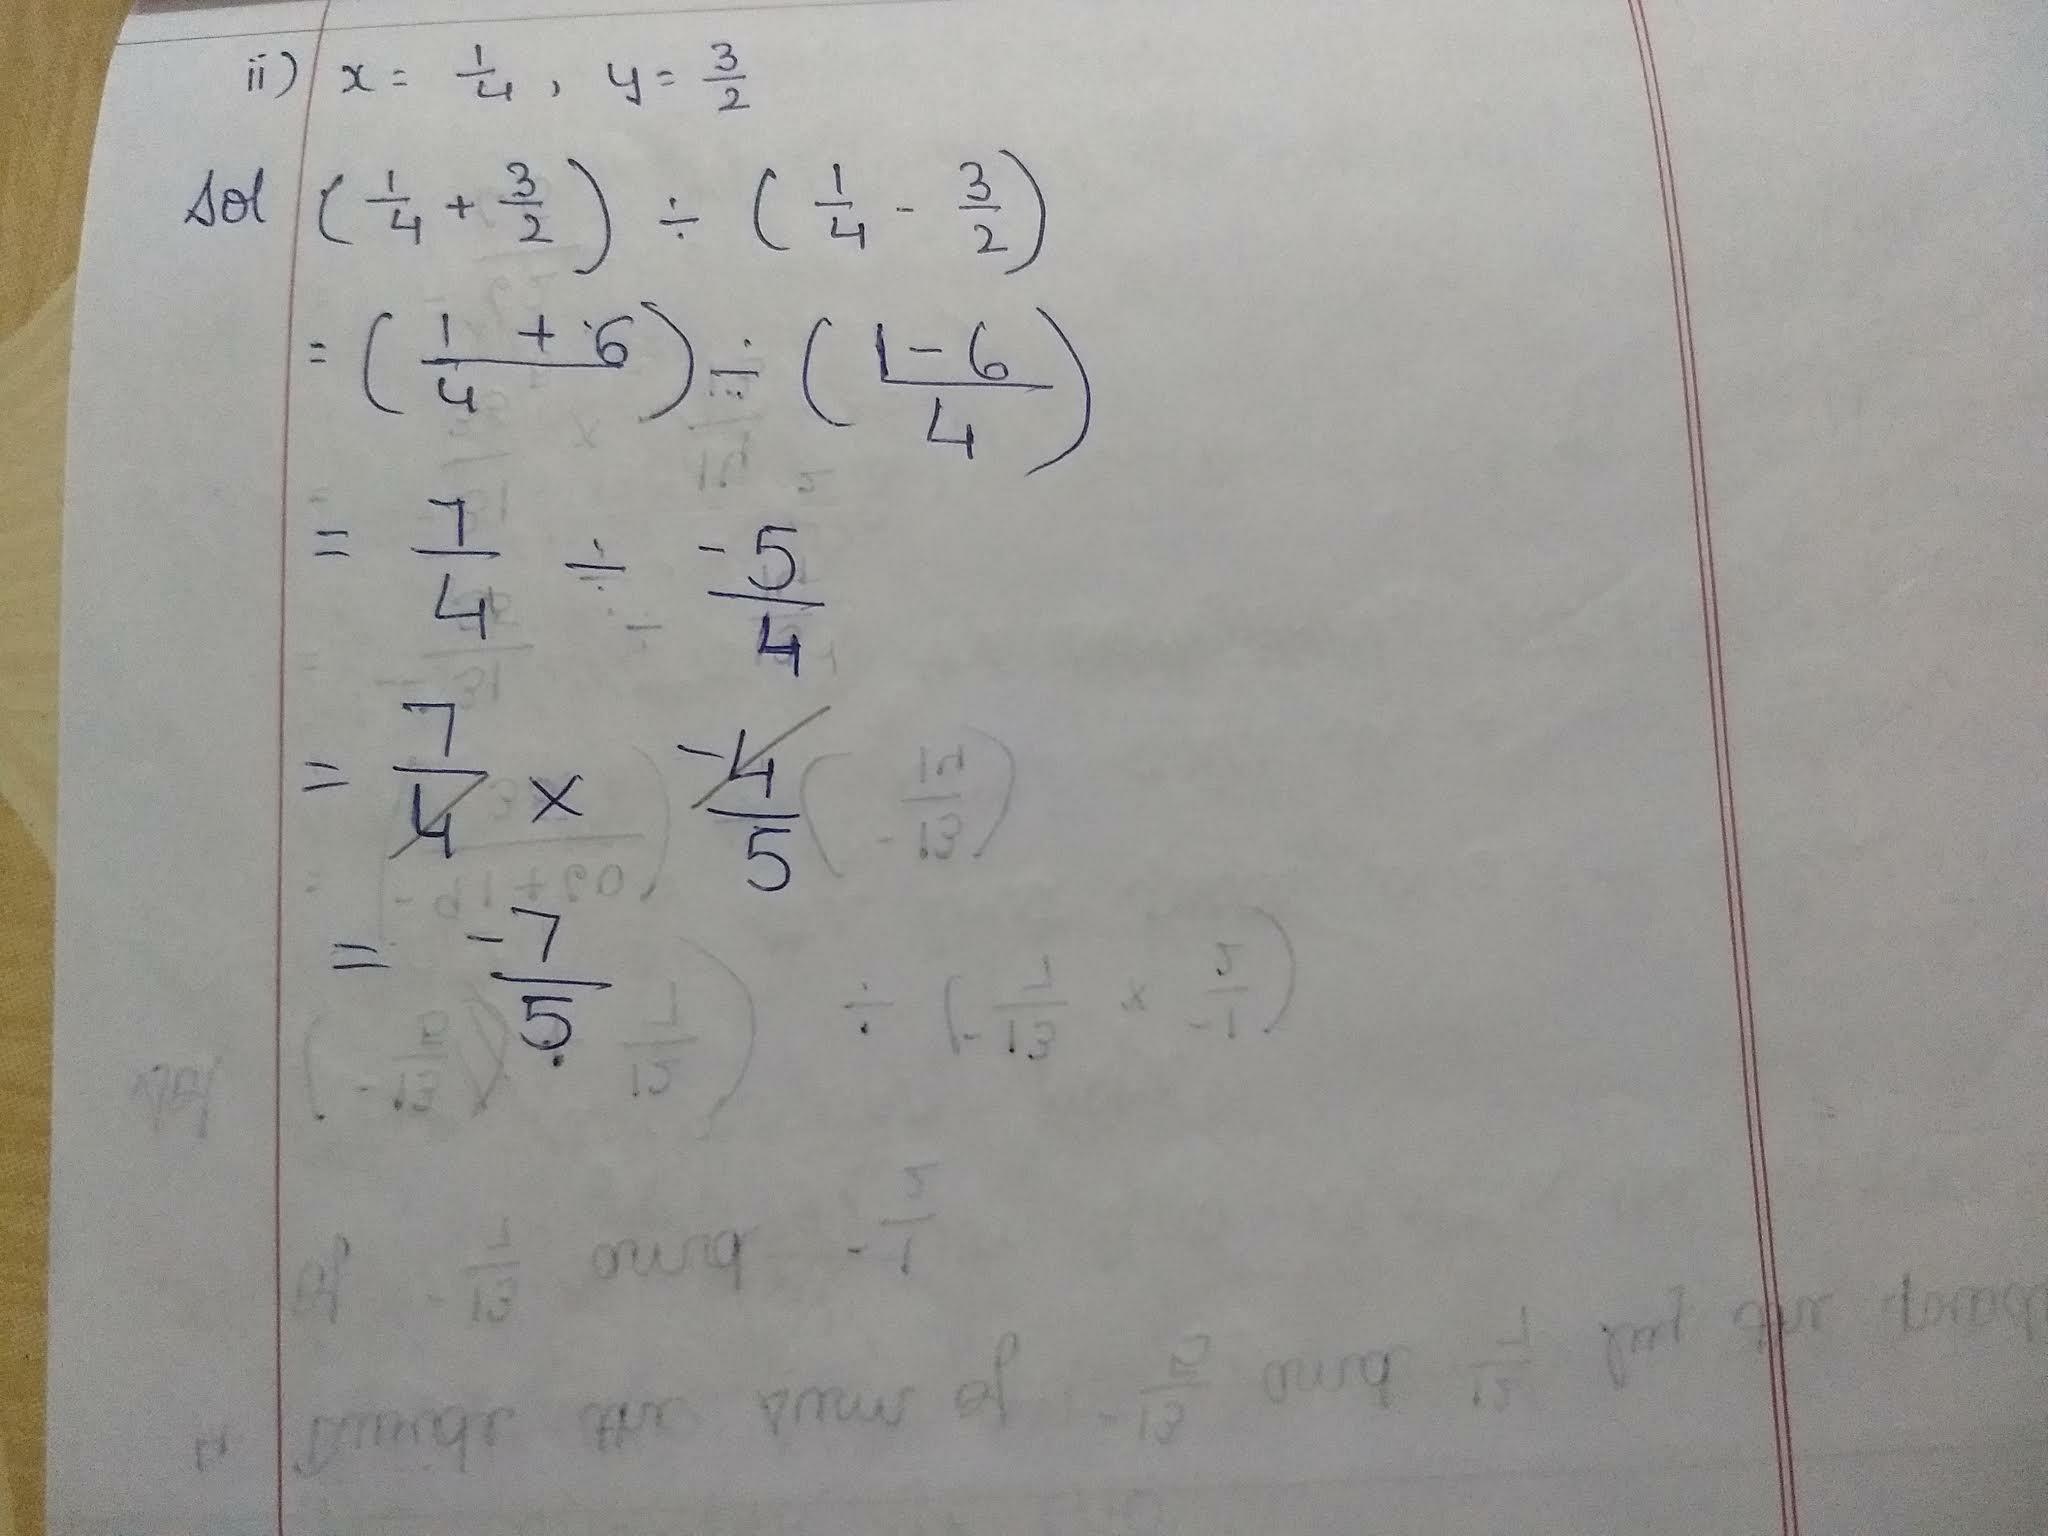 ii) x = 1/4, y = 3/2
Sol (1/4 + 3/2) ÷ (1/4 - 3/2)
= (1 + 6/4) ÷ (1 - 6/4)
= 7/4 ÷ -5/4
= 7/4 × -4/5
= -7/5.